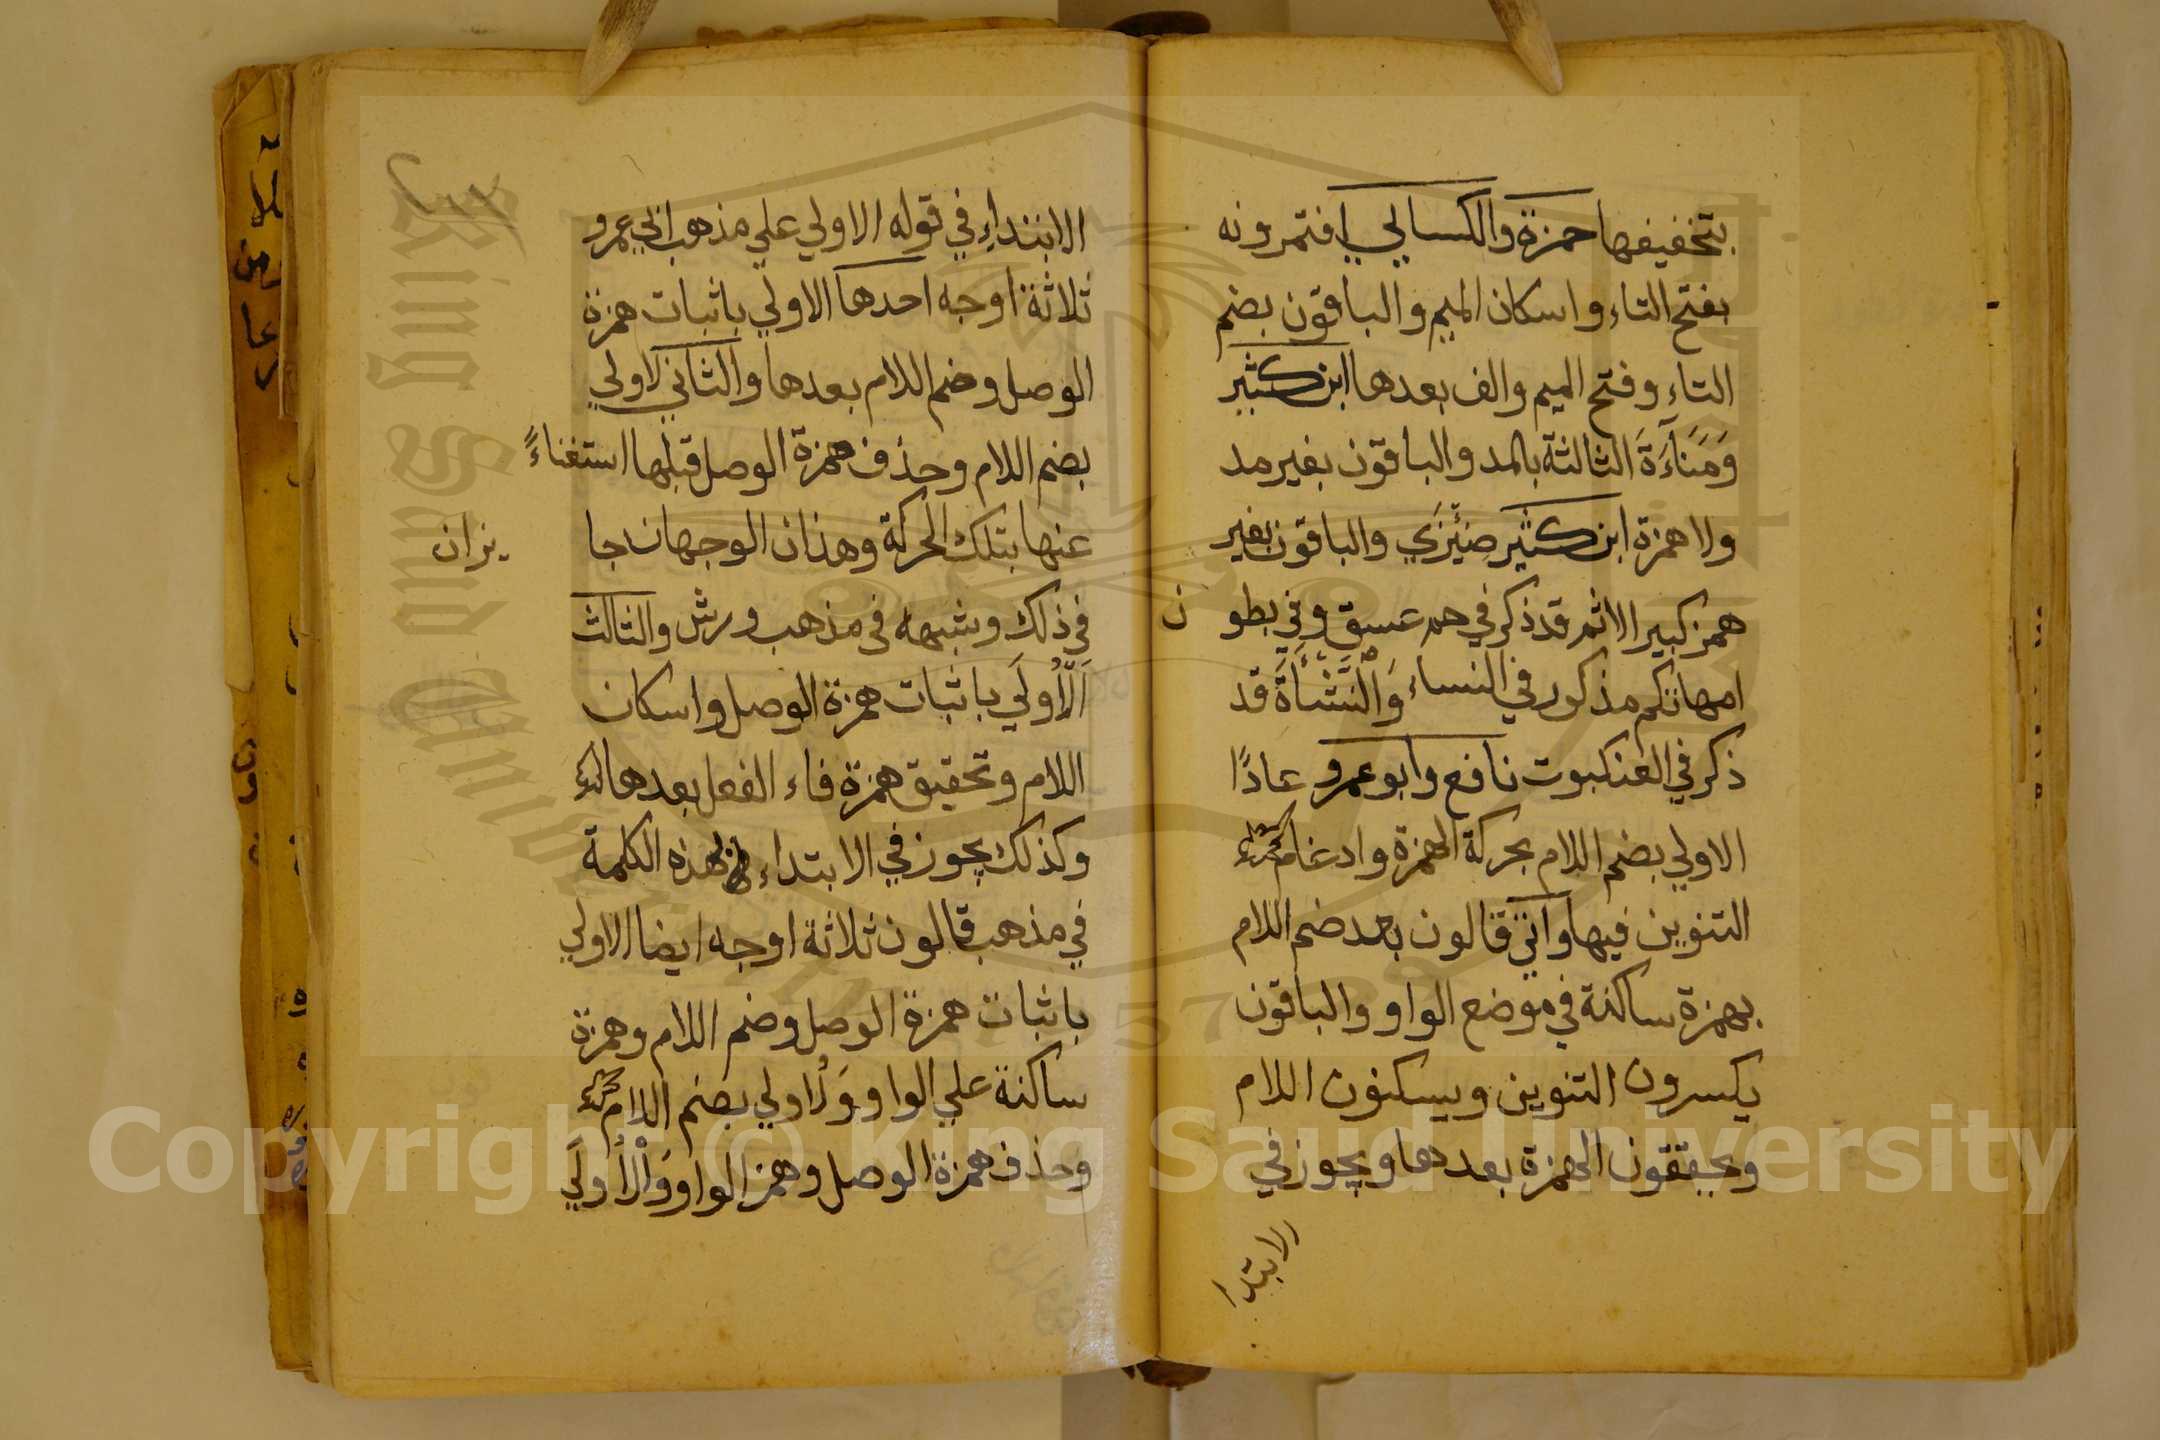 بتخفيفها حمزة والكسائي افتمرونه
بفتح التاء واسكان الميم والباقون بضم
التاء وفتح الميم والف بعدها ابن كثير
وَمَنَآءَةَ الثالثة بالمد والباقون بغير مد
ولا همزة ابن كثير ضِئْزَي والباقون بغير
همز كبير الاثم قد ذكر في حم عسق وفي بطون
امهاتكم مذكور في النساء وَالنَّشْأَةَ قد
ذكر في العنكبوت نافع وابو عمرو عادًا
الاولي بضم اللام بحركة الهمزة وادغام
التنوين فيها واتي قالون بعد ضم اللام
بهمزة ساكنة في موضع الواو والباقون
يكسرون التنوين ويسكنون اللام
ويحققون الهمزة بعدها ويجوز في
الابتدا
الابتداءِ في قوله الاولي علي مذهب ابي عمرو
ثلاثة اوجه احدها الاولي باثبات همزة
الوصل وضم اللام بعدها والثاني لاولي
بضم اللام وحذف همزة الوصل قبلها استغناءً
عنها بتلك الحركة وهذان الوجهان جا يزان
في ذلك وشبهه في مذهب ورش والثالث
اَلْأُولَي باثبات همزة الوصل واسكان
اللام وتحقيق همزة فاء الفعل بعدها
وكذلك يجوز في الابتداء بهذه الكلمة
في مذهب قالون ثلاثة اوجه ايضا الاولي
باثبات همزة الوصل وضم اللام وهمزة
ساكنة علي الواو وَلُاولي بضم اللام
وحذف همزة الوصل وهمز الواو وَالْأُولَي
Copyright © King Saud University